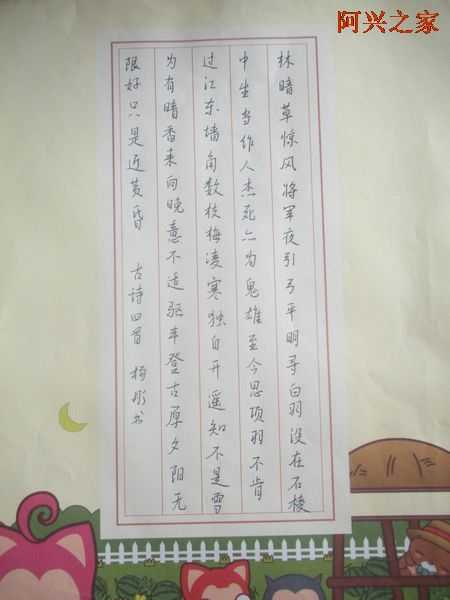 阿兴之家
林暗草惊风将军夜引弓平明寻白羽没在石棱
中生当作人杰死亦为鬼雄至今思项羽不肯
过江东墙角数枝梅凌寒独自开遥知不是雪
为有暗香来向晚意不适驱车登古原夕阳无
限好只是近黄昏 古诗四首 书